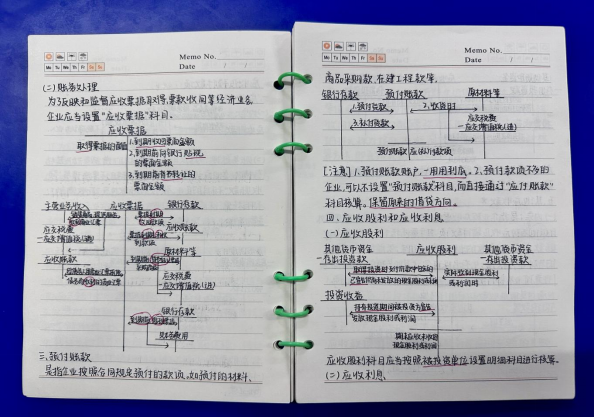 Memo No.
Mo Tu We Th Fr Sa Su
Date / /
(二)账务处理
为了反映和监督应收票据取得、票款收回等经济业务,
企业应当设置"应收票据"科目。
应收票据
取得票据的面值
1.到期收回票面金额
2.到期前向银行贴现
的票面金额
3.到期前背书转让的
票面金额
主营业务收入
应收票据
银行存款
应交税费
应收账款
原材料等
应收账款
应交税费
银行存款
财务费用
三、预付账款
是指企业按照合同规定预付的款项,如预付的材料、
Memo No.
Mo Tu We Th Fr Sa Su
Date / /
商品采购款、在建工程款等。
银行存款
预付账款
原材料等
1.预付货款
2.收货时
3.补付货款
应交税费
—应交增值税(进)
[注意]1.预付账款账户,一用用到底。2.预付款项不多的
企业,可以不设置"预付账款"科目,而直接通过"应付账款"
科目核算。保留原来的借贷方向。
四、应收股利和应收利息
(一)应收股利
其他货币资金
—存出投资款
应收股利
其他货币资金
—存出投资款
实际收到现金股利
或利润时
投资收益
应收股利科目应当按照被投资单位设置明细科目进行核算。
(二)应收利息